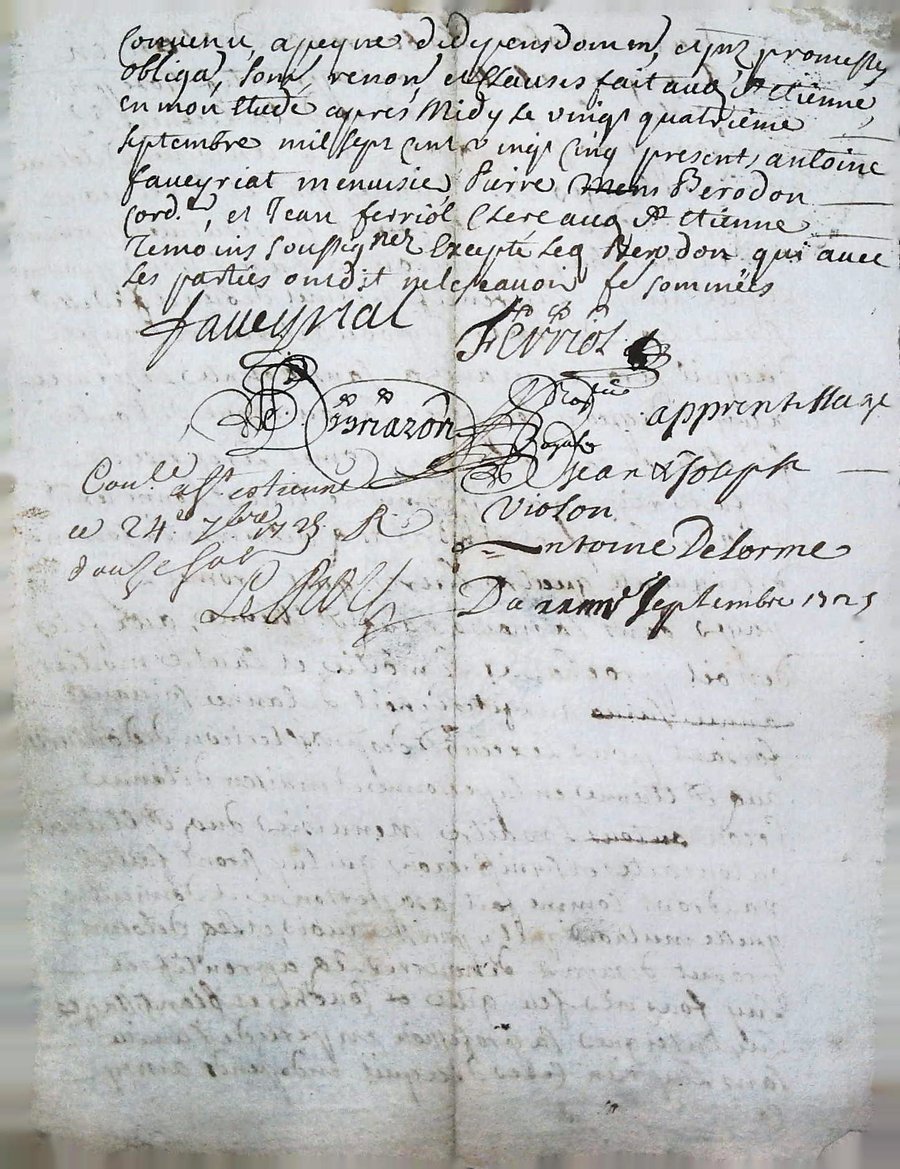 Convenu, a peyne de depens dom en, et par promesses
obliga, soum, renon, et Clauses fait aud St Etienne
en mon Etude apres Midy le vingt quatrieme
Septembre mil sept cent vingt cinq presents antoine
faveyriat menuisie, Pierre Mens Berodon
Cord.er, et Jean ferriol Clerc aud St Etienne
Temoins soussignez Excepté led Berodon qui avec
les parties ont dit ne le scavoir de ce sommées
faveyriat
Ferriol
Brunazon
apprentissage
Jean & Joseph
Violon
Antoine Delorme
Du 24me Septembre 1725
Conlé a St estienne
ce 24e 7bre 1725 R
douze sols